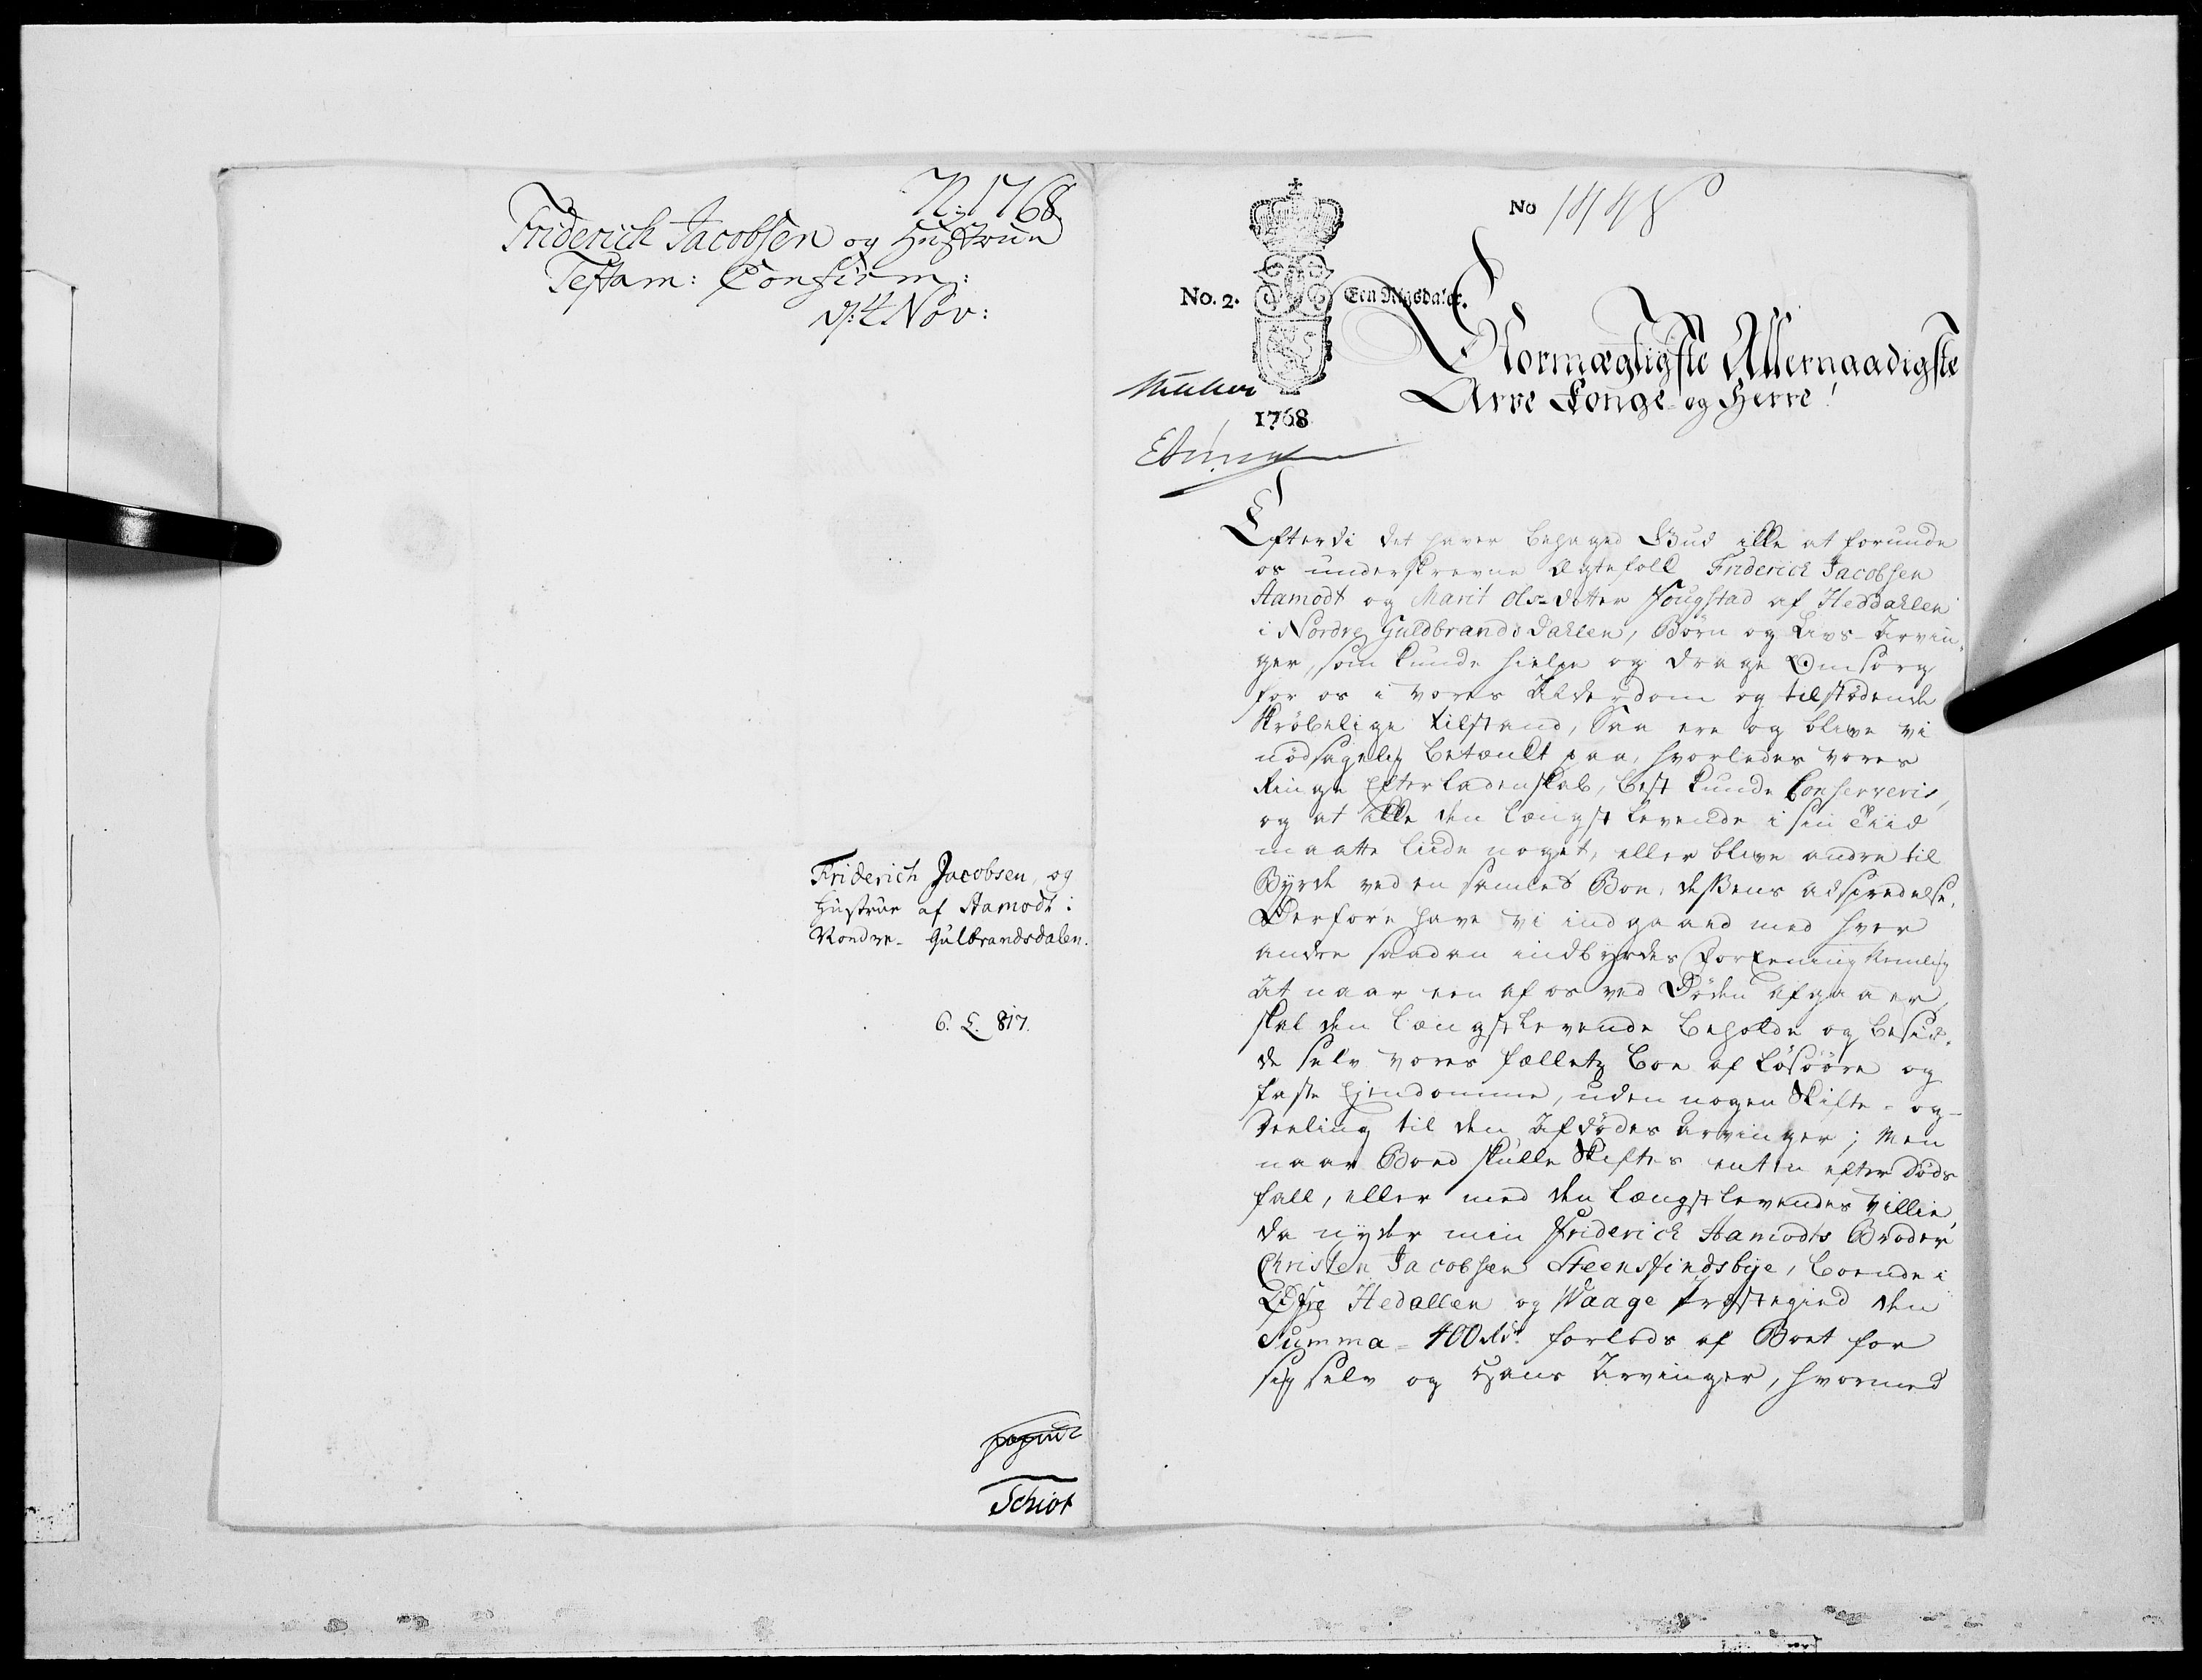 N: 1768
Friderich Jacobsen og Hustrue
Testam: Confirm:
d: 4 Nov:
Friderich Jacobsen, og
Hustrue af Aamodt i
Nordre Gulbrandsdalen.
6. L. 817.
Schiøt
No 1448
No. 2. Een Rigsdaler.
1768
Stormægtigste Allernaadigste
Arve Konge og Herre!
Efterdi det haver behaged Gud ikke at forunde
os underskrevne Ægtefolk Friderich Jacobsen
Aamodt og Marit Ols-dotter Fougstad af Heddahlen
i Nordre Guldbrandsdahlen, Børn og Livs-Arvin-
ger, som kunde hielpe og drage Omsorg
for os i vores Alderdom og tilstødende
skrøbelige tilstand, Saa ere og blive vi
nødsagelig betænkt paa, hvorledes vores
Ringe Efterladenskab, best kunde Conserveris,
og at ikke den længst levende i sin Tiid
maatte liide noget, eller blive andre til
Byrde ved en samled Boe, deßens adspredelse.
Derfore have vi indgaaed med hver
andre saadan indbyrdes Foreening Nemlig
At naar een af os ved Døden afgaaer,
skal den længstlevende beholde og besid-
de selv vores fælleds Boe af Løsøøre og
faste Ejendomme, uden nogen Skifte- og
Deeling til den Afdødes Arvinger; Men
naar Boed skulle Skiftes enten efter Døds
fall, eller med den længst levendes Villie,
da nyder min Friderich Aamodts Broder
Christen Jacobsen Steensfindsbye, boende i
Hedallen og Waage Præstegield den
Summa 400 Rdr. forlods af Boet for
sig selv og Hans Arvinger, hvormed